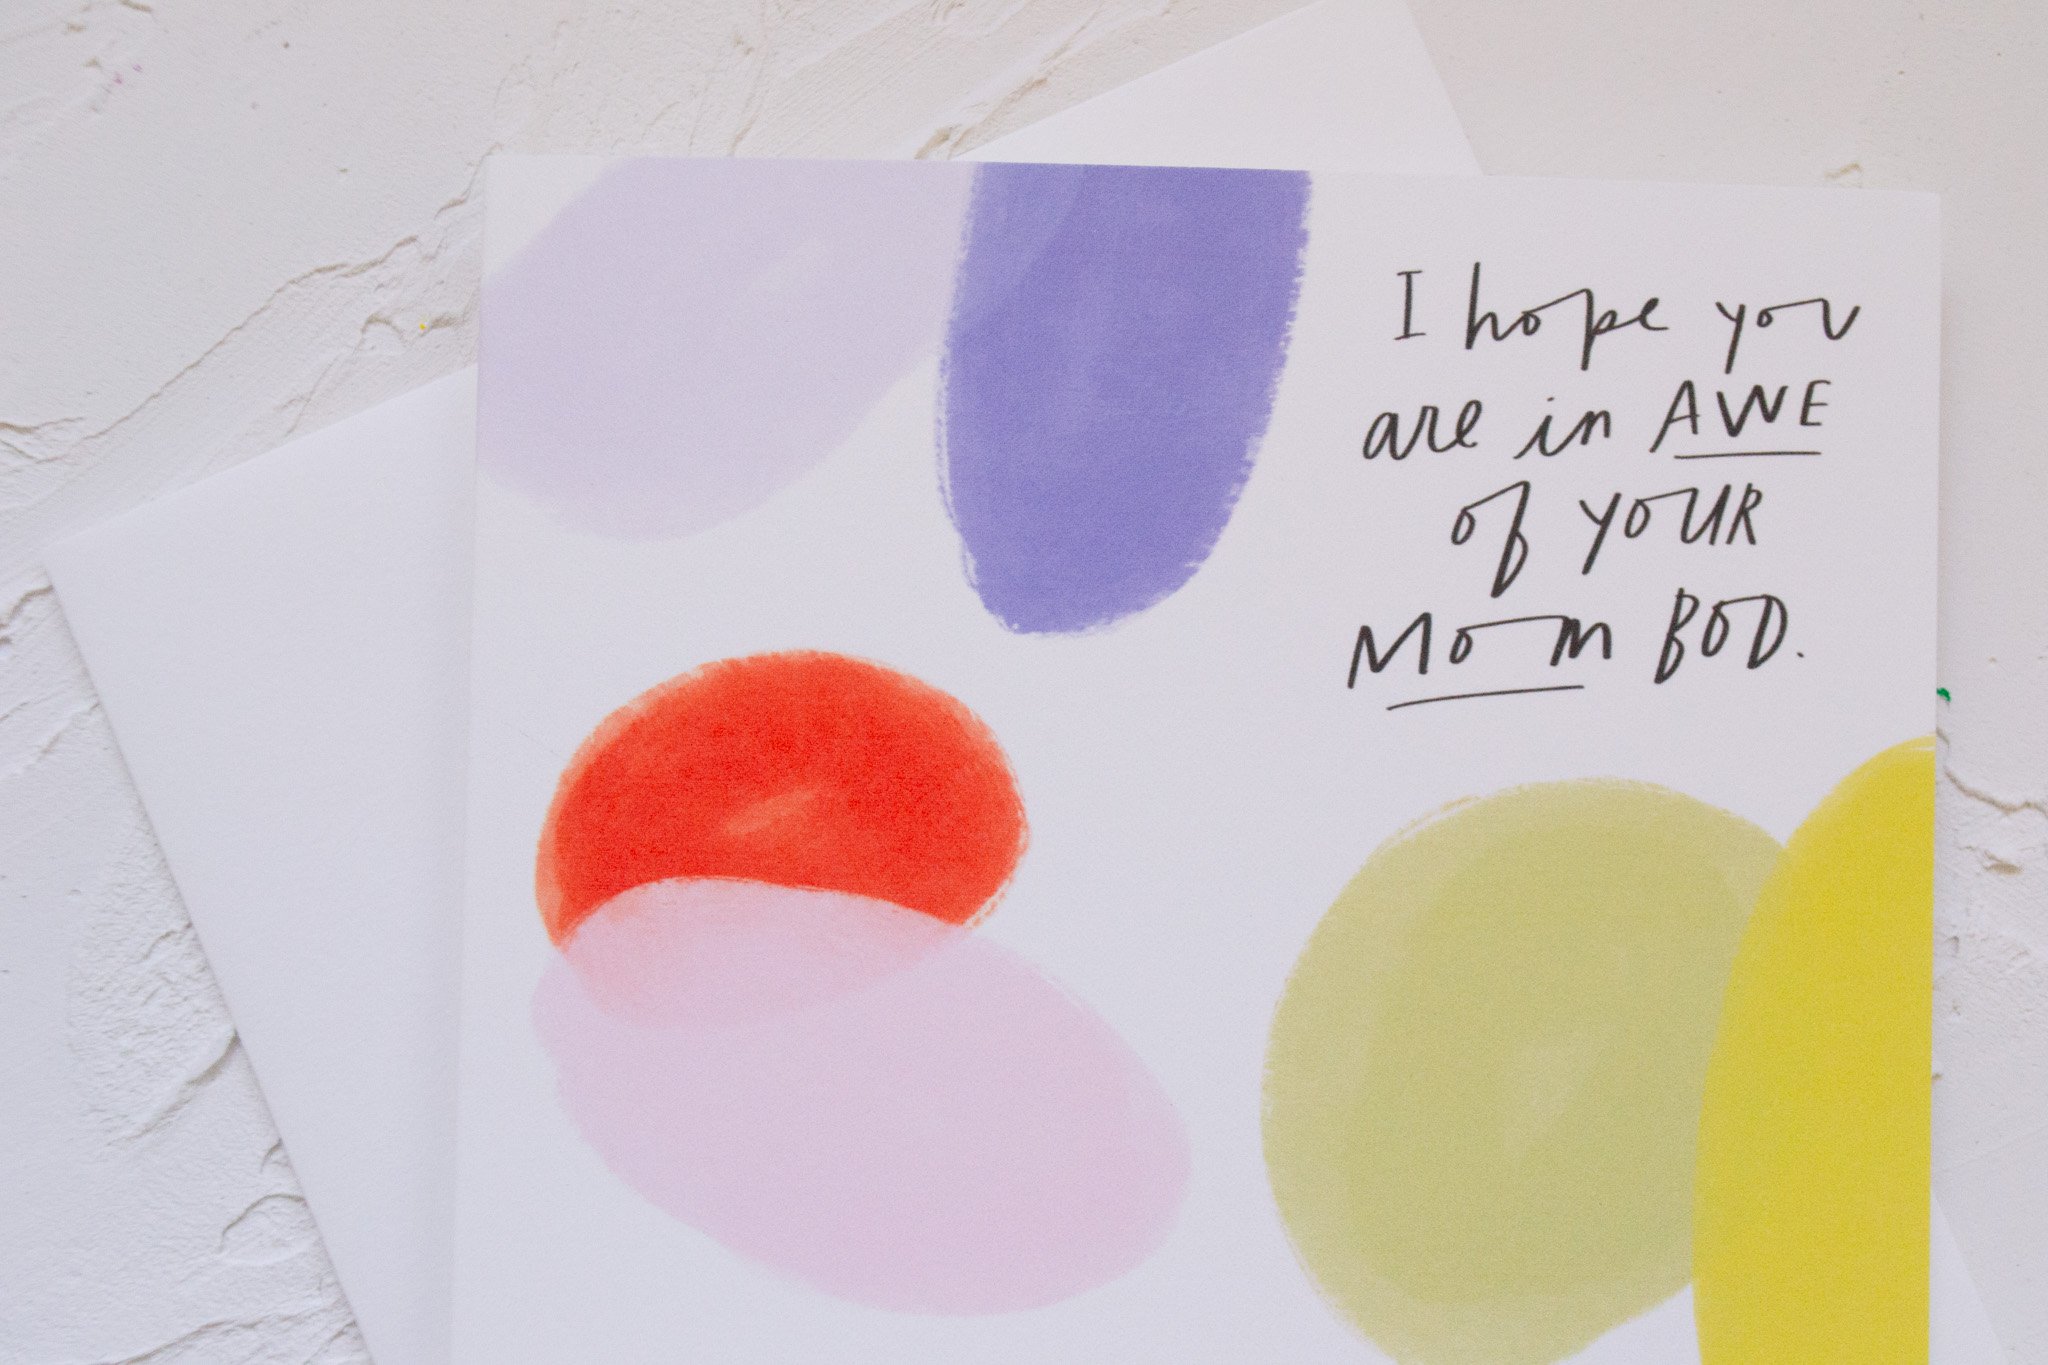 I hope you
are in AWE
of YOUR
MOM BOD.